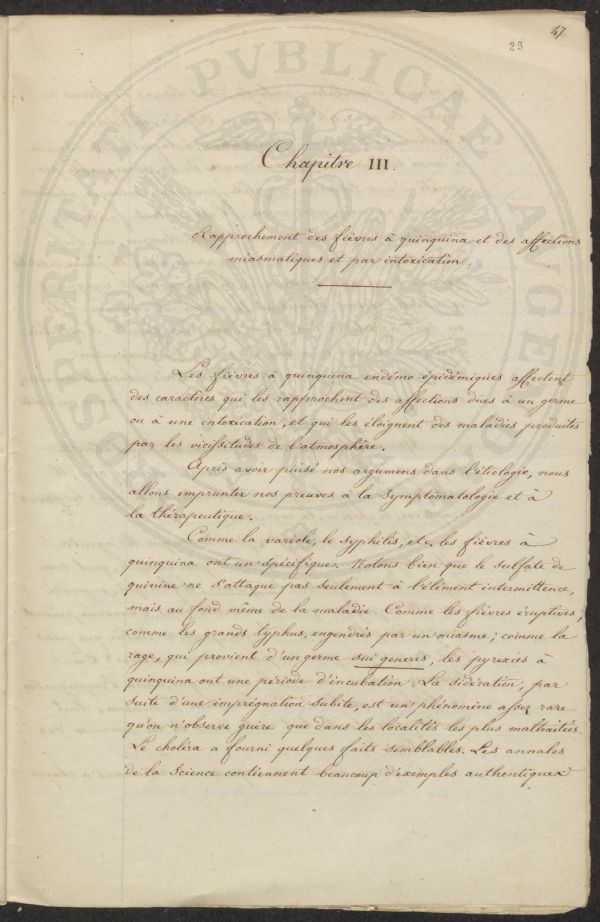 47
25
Chapitre III.
Rapprochement des fièvres à quinquina et des affections
miasmatiques et par intoxication.
Les fièvres à quinquina endémo-épidémiques affectent
des caractères qui les rapprochent des affections dues à un germe
ou à une intoxication, et qui les éloignent des maladies produites
par les vicissitudes de l'atmosphère.
Après avoir puisé nos argumens dans l'étiologie, nous
allons emprunter nos preuves à la Symptomatologie et à
la thérapeutique.
Comme la variole, le Syphilis, etc. les fièvres à
quinquina ont un spécifique. Notons bien que le sulfate de
quinine ne s'attaque pas seulement à l'élément intermittence,
mais au fond même de la maladie. Comme les fièvres éruptives,
comme les grands typhus, engendrés par un miasme; comme la
rage, qui provient d'un germe sui generis, les pyrexies à
quinquina ont une période d'incubation. La sidération, par
suite d'une imprégnation subite, est un phénomène assez rare
qu'on n'observe guère que dans les localités les plus maltraitées.
Le choléra a fourni quelques faits semblables. Les annales
de la Science contiennent beaucoup d'exemples authentiques